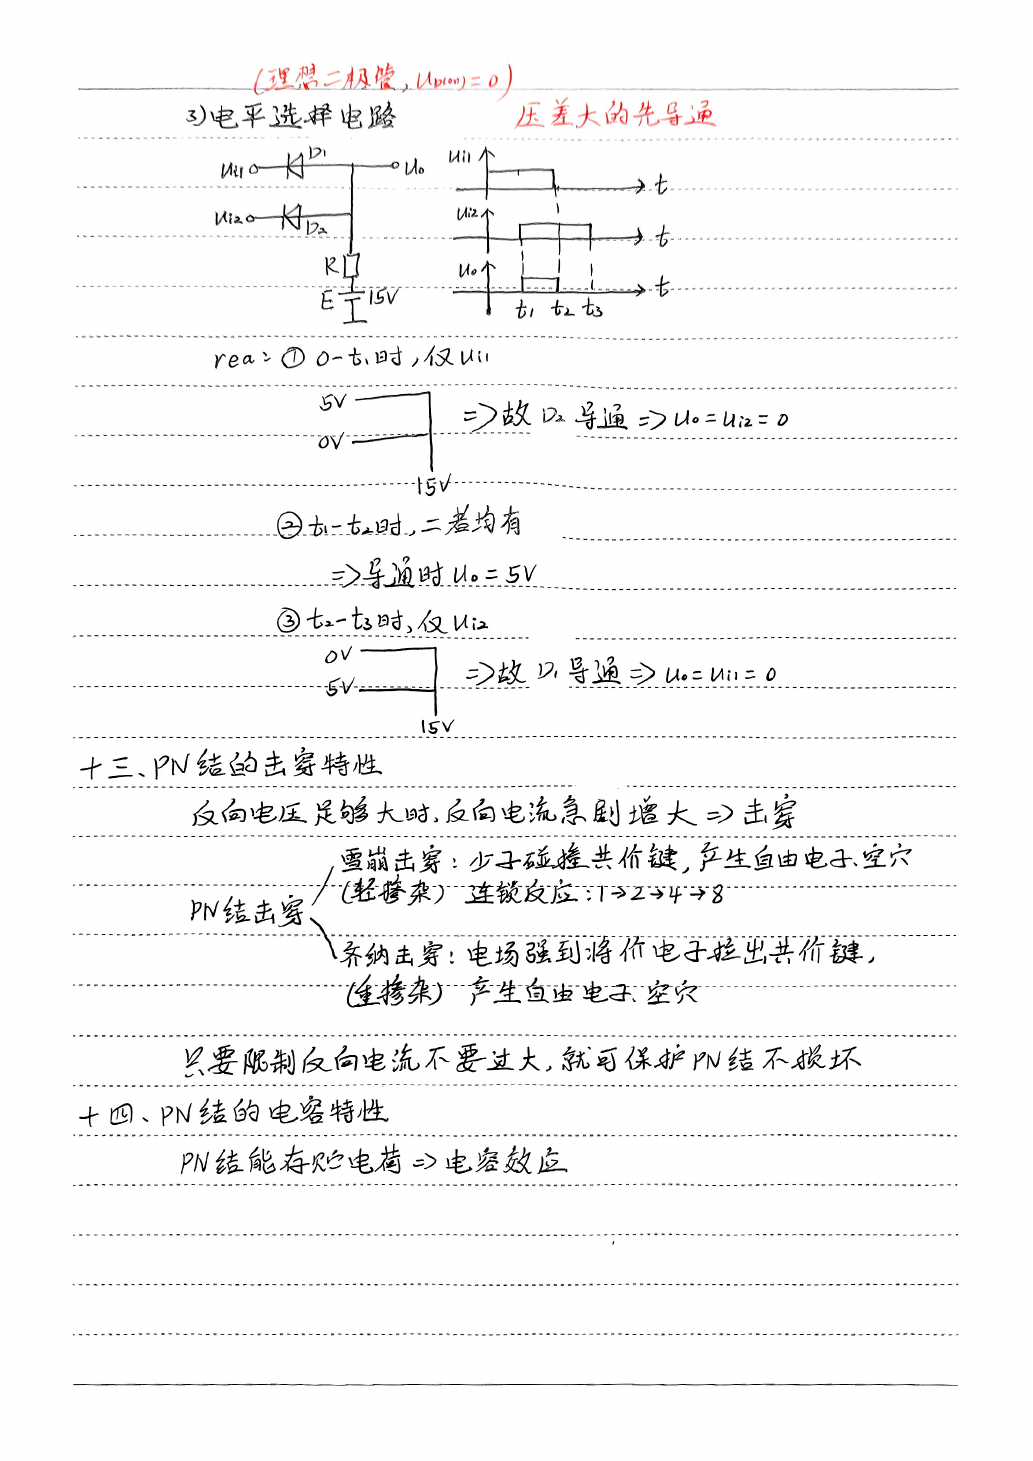 (理想二极管, U_D(on) = 0)
3) 电平选择电路 压差大的先导通
Ui1 D1 Uo
Ui2 D2
R
E 15V
Ui1 t
Ui2 t
Uo t
t1 t2 t3
rea: ① 0-t1时, 仅Ui1
5V
0V
15V
=> 故 D2 导通 => Uo = Ui2 = 0
② t1-t2时, 二者均有
=> 导通时 Uo = 5V
③ t2-t3时, 仅Ui2
0V
5V
15V
=> 故 D1 导通 => Uo = Ui1 = 0
十三、PN结的击穿特性
反向电压足够大时, 反向电流急剧增大 => 击穿
PN结击穿
雪崩击穿: 少子碰撞共价键, 产生自由电子、空穴
(轻掺杂) 连锁反应: 1→2→4→8
齐纳击穿: 电场强到将价电子拉出共价键,
(重掺杂) 产生自由电子、空穴
只要限制反向电流不要过大, 就可保护PN结不损坏
十四、PN结的电容特性
PN结能存贮电荷 => 电容效应